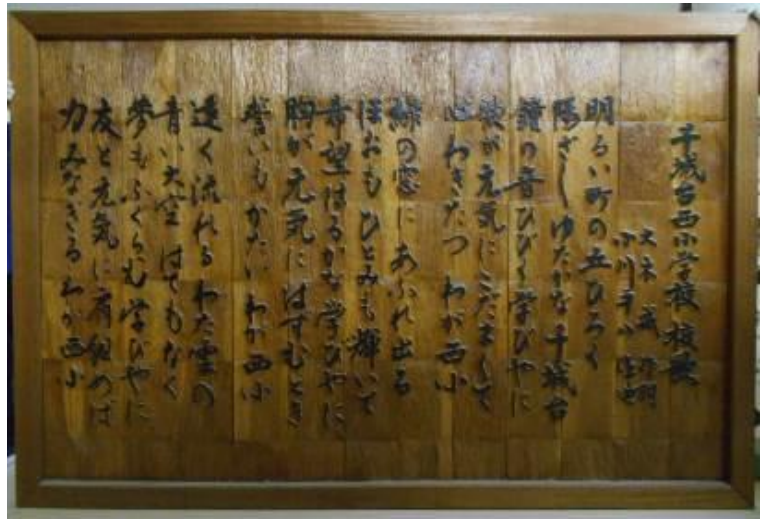 千城台西小学校校歌
大木 作詞
小川 作曲
明るい町の丘ひろく
陽ざしゆたかな千城台
鐘の音ひびく学びやに
歌が元気にこだまして
心わきたつ わが西小
緑の窓に あふれ出る
ほおもひとみも輝いて
希望はるかな学びやに
胸が元気にはずむとき
誓いもかたい わが西小
遠く流れるわた雲の
青い大空 はてもなく
夢もふくらむ学びやに
友と元気に肩組めば
力みなぎるわが西小